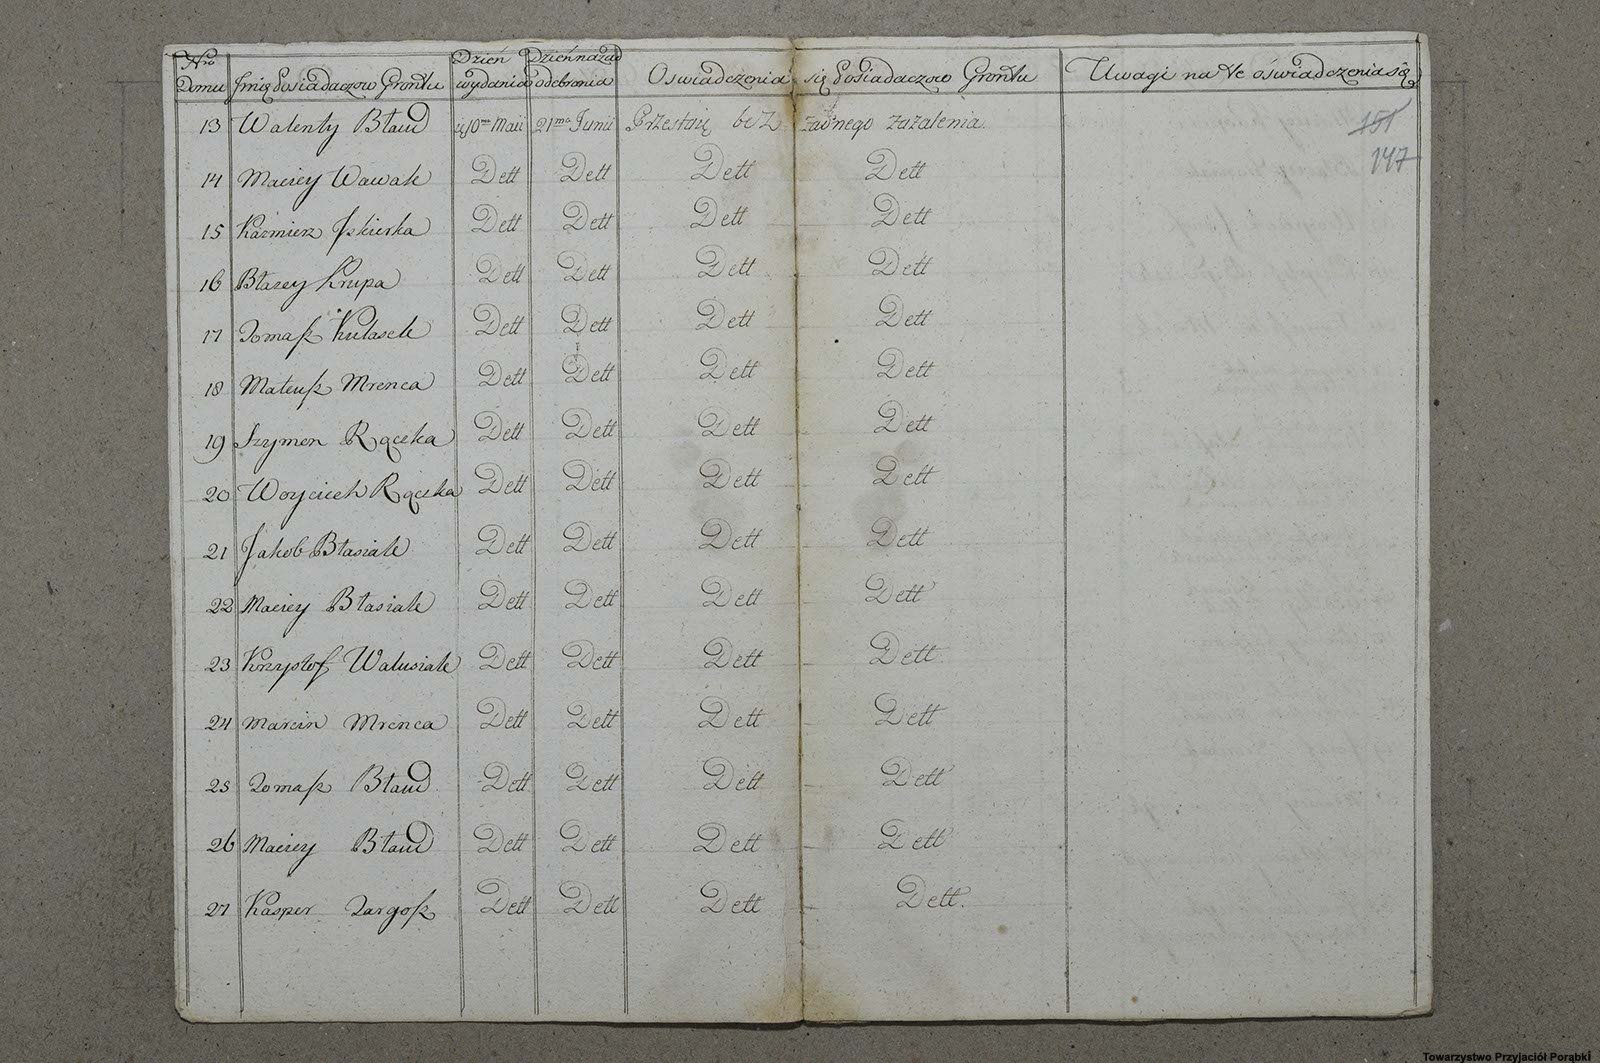 Nro Domu Imię Posiadaczow Grontu Dzień wydania Dzień nazad odebrania Oswiadczenia się Posiadaczow Grontu Uwagi na te oświadczenia się
151
147
13 Walenty Bławd 10ma Maii 21ma Junii Przestaię bez żadnego zażalenia.
14 Maciey Wawak Dett Dett Dett Dett
15 Kaźmierz Iskierka Dett Dett Dett Dett
16 Błazey Krupa Dett Dett Dett Dett
17 Tomaß Kułasek Dett Dett Dett Dett
18 Mateuß Mrenca Dett Dett Dett Dett
19 Szymon Rączka Dett Dett Dett Dett
20 Woyciech Rączka Dett Dett Dett Dett
21 Jakob Błasiak Dett Dett Dett Dett
22 Maciey Błasiak Dett Dett Dett Dett
23 Krzysztof Walusiak Dett Dett Dett Dett
24 Marcin Mrenca Dett Dett Dett Dett
25 Tomaß Bławd Dett Dett Dett Dett
26 Maciey Bławd Dett Dett Dett Dett
27 Kasper Targoß Dett Dett Dett Dett.
Towarzystwo Przyjaciół Porąbki